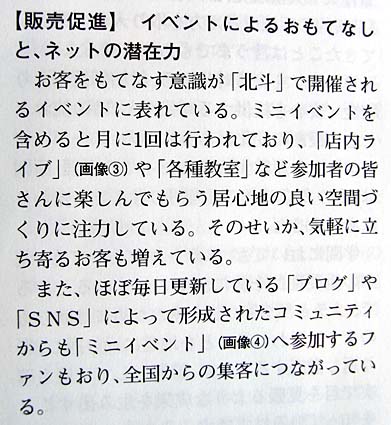 【販売促進】　イベントによるおもてなし
と、ネットの潜在力
　お客をもてなす意識が「北斗」で開催され
るイベントに表れている。ミニイベントを
含めると月に1回は行われており、「店内ラ
イブ」(画像③)や「各種教室」など参加者の皆
さんに楽しんでもらう居心地の良い空間づ
くりに注力している。そのせいか、気軽に立
ち寄るお客も増えている。
　また、ほぼ毎日更新している「ブログ」や
「ＳＮＳ」によって形成されたコミュニティ
からも「ミニイベント」(画像④)へ参加するフ
ァンもおり、全国からの集客につながってい
る。